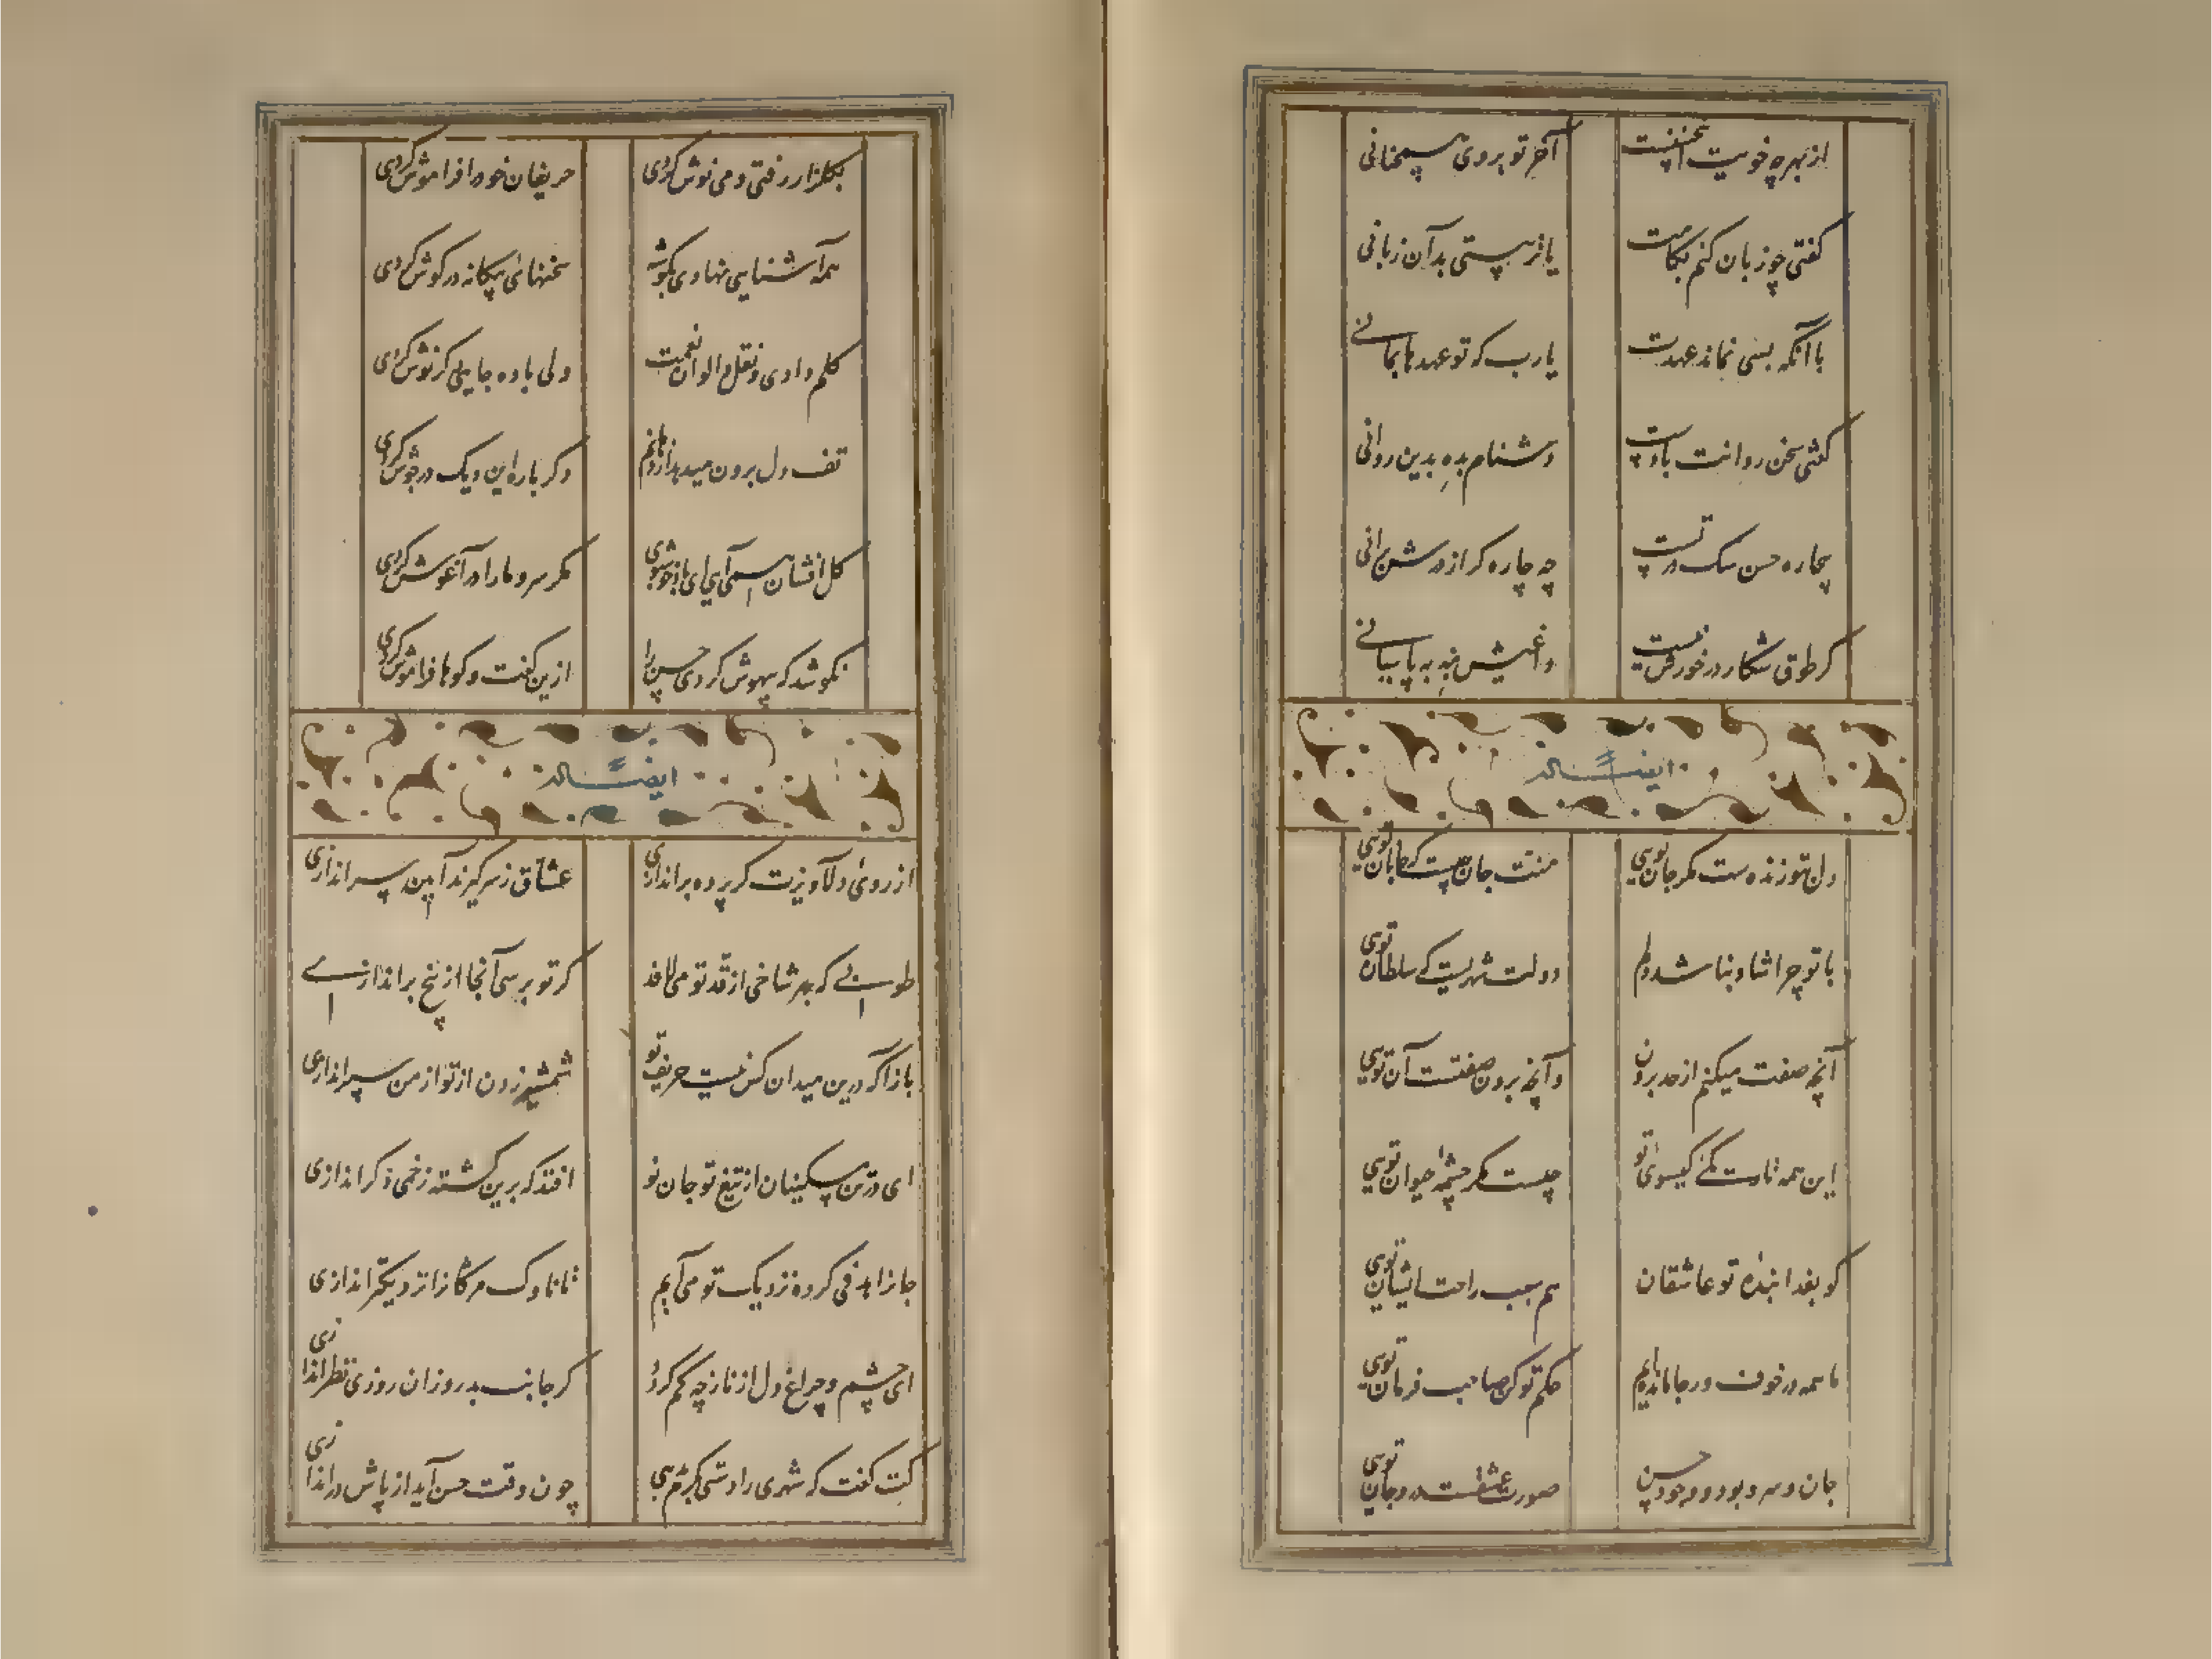 از بهر چه خوبیت
آخر تو بروی
گفتی چو زبان کنم بکامت
یا نیستی بدان زبانی
با آنکه بسی نماند عهدت
یارب که تو عهدها بمانی
گفتی سخن روانت بادست
دشنام بده بدین روانی
بیچاره حسن سگ در تست
چه چاره کر از درش برانی
کر طوق شکار در خورش نیست
داغیش بنه به پاسبانی
ایضاً له
دل بتو زنده ست مکر جان تویی
منت جان چیست که جانان تویی
با تو چرا شاد نباشد دلم
دولت شهریست که سلطان تویی
آنچه صفت میکنم از حد برون
وآنچه برون صفتست آن تویی
این همه تارست که کیسوی تو
چیست مکر چشمه حیوان تویی
کو بفدا بنده تو عاشقان
هم سبب راحت ایشان تویی
ما همه در خوف و رجا مانده ایم
حکم تو کن صاحب فرمان تویی
جان و سر و بود و وجود حسن
صورت عشقست درو جان تویی
بکلزار رفتی و می نوش کردی
حریفان خود را فراموش کردی
همه آشنایی نهادی بکوشه
سخنهای بیکانه در کوش کردی
کلم دادی و نقل و الوان نعمت
ولی باده جایی دکر نوش کردی
تف دل برون میدهد از دهانم
دکر باره این دیک در جوش کردی
کل افشان همی آیی ای باد خوشبوی
مکر سرو ما را در آغوش کردی
نکو شد که بیهوش کردی حسن را
ازین کفت و کوها فراموش کردی
ایضاً له
از روی دلاویزت کر پرده براندازی
عشاق ز سر کیرند آیین سراندازی
طوبی که بهر شاخی از قد تو می لافد
کر تو برسی آنجا از بیخ براندازی
بازآ که درین میدان کس نیست حریف تو
شمشیر زدن از تو از من سپر اندازی
ای در تن مسکینان از تیغ تو جان نو
افتد که برین کشته زخمی دکر اندازی
جانرا هدفی کرده نزدیک تو می آیم
تا ناوک مژکانرا نزدیکتر اندازی
ای چشم و چراغ دل از ناز چه کم کردد
کر جانب بدروزان روزی نظر اندازی
کت کفت که شهری را دستی بکرم می
چون وقت حسن آید از پاش دراندازی